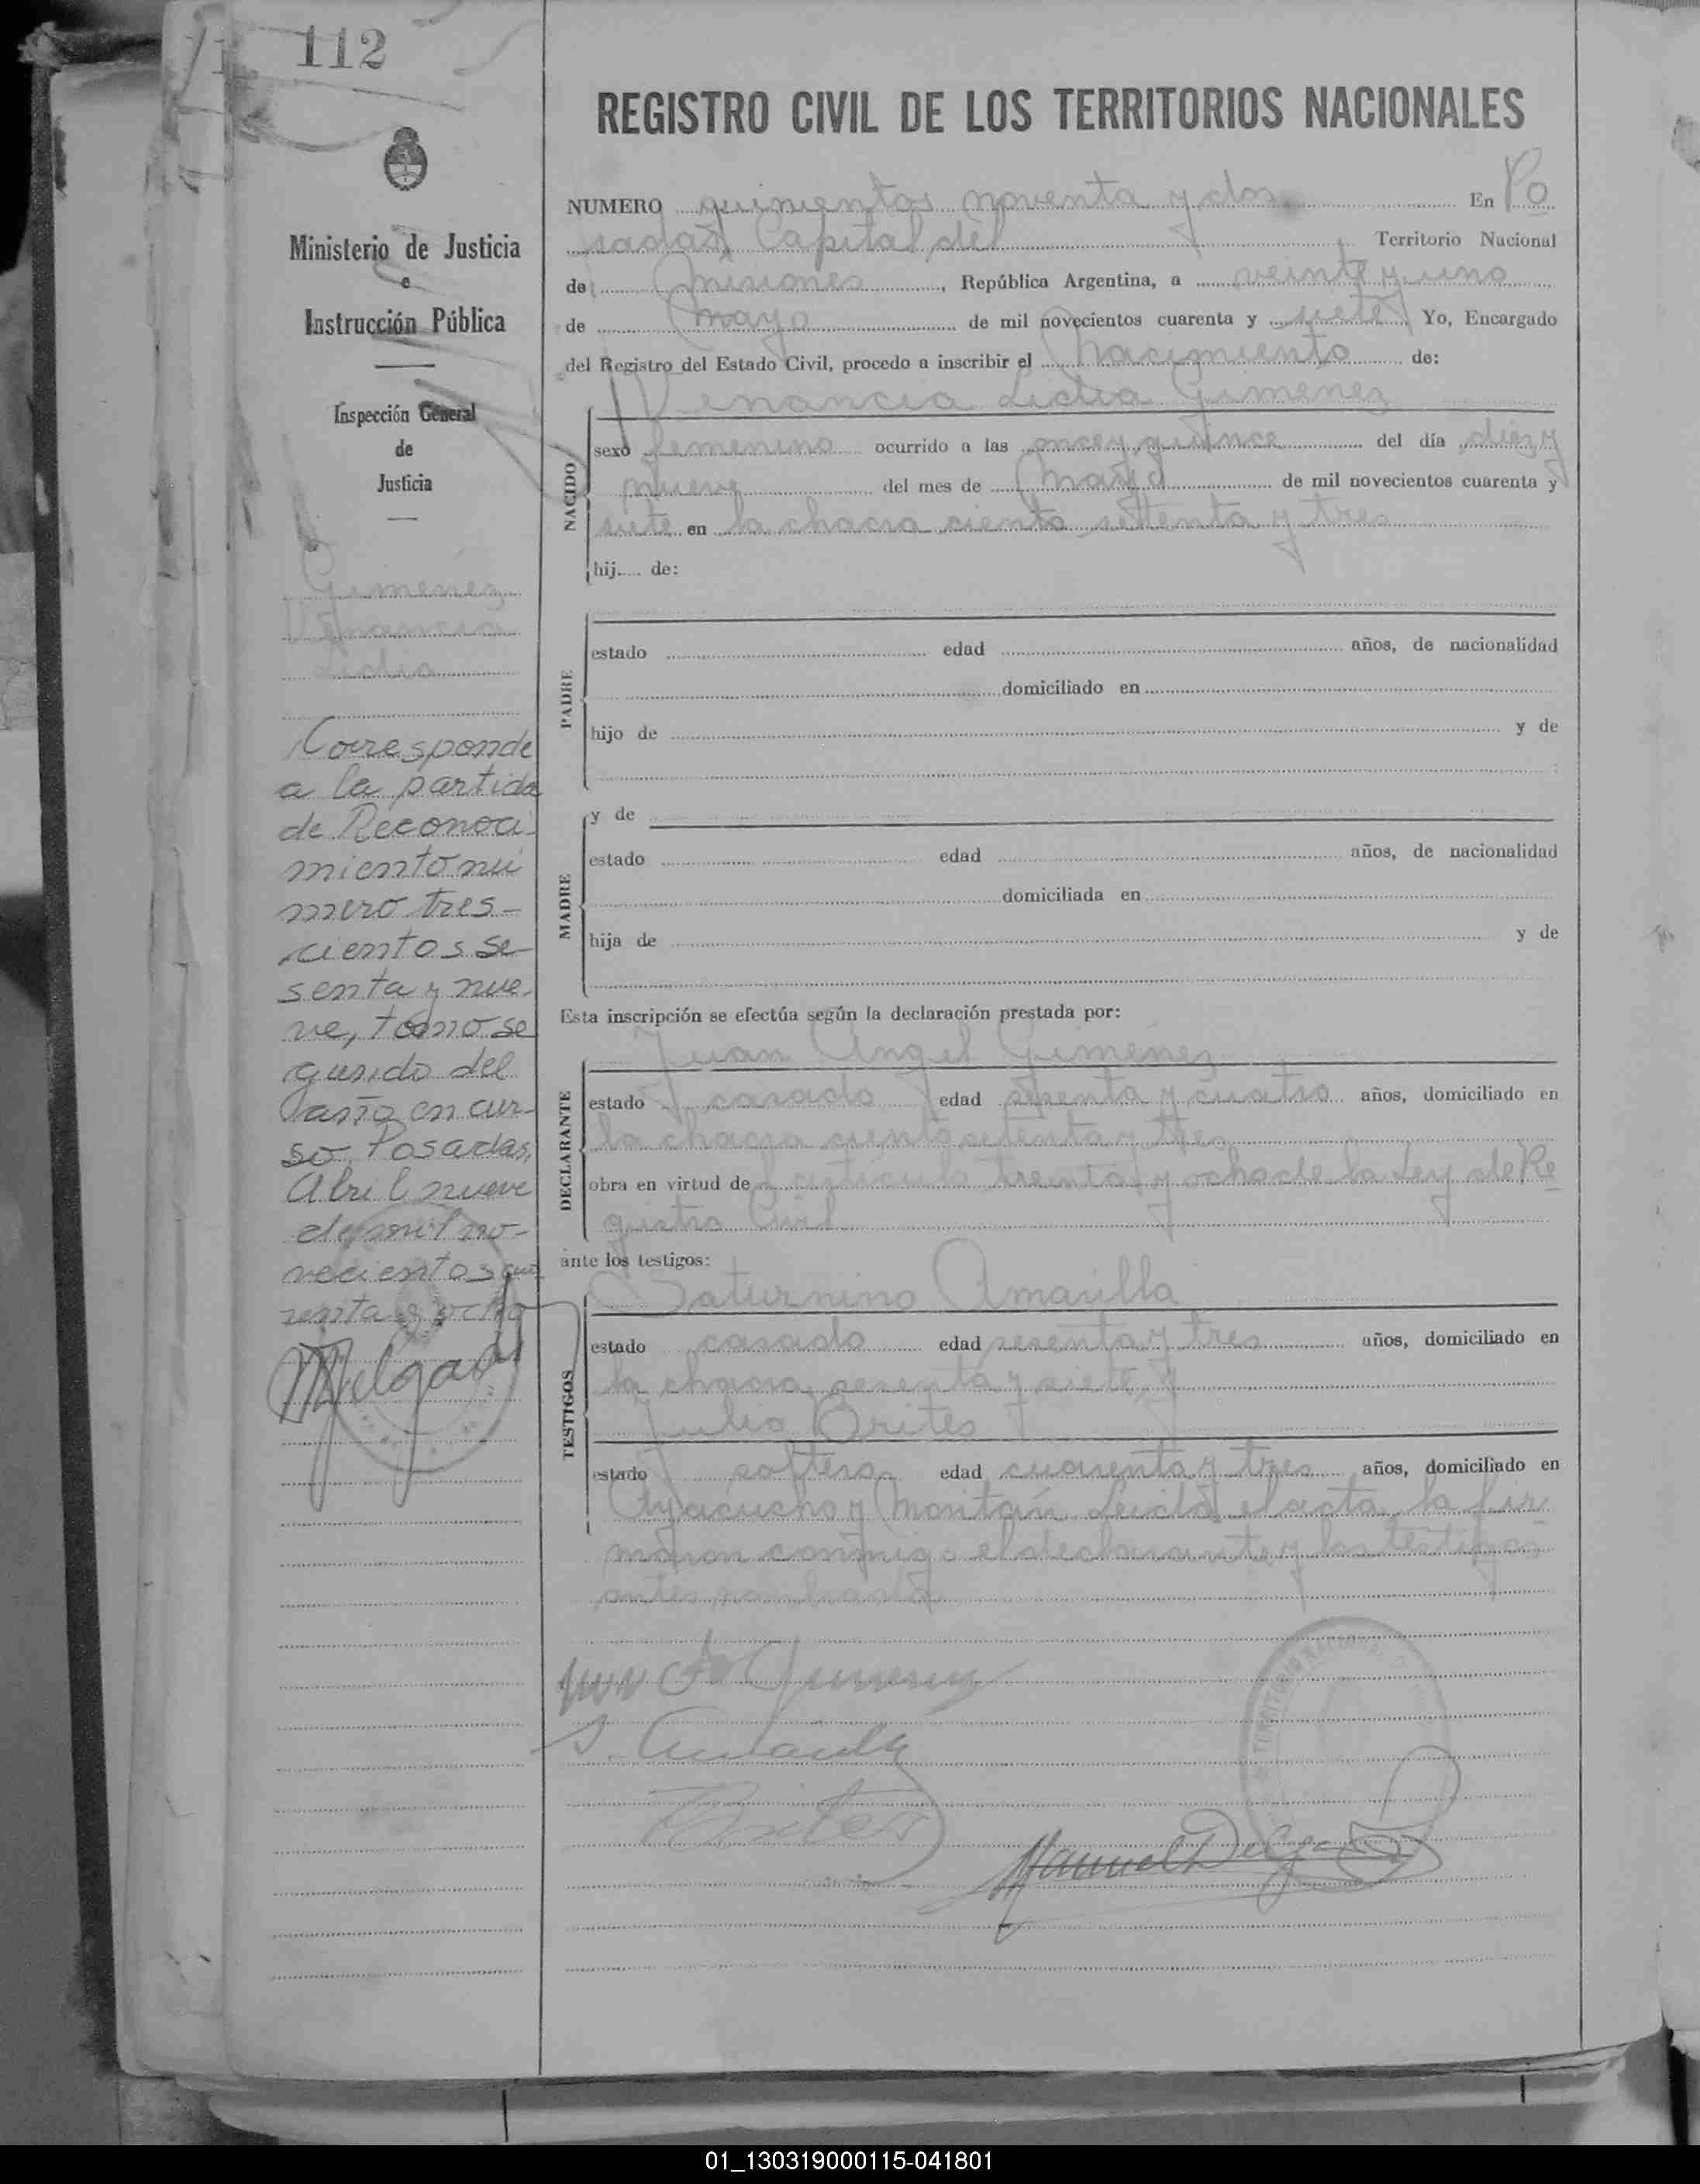 112
Ministerio de Justicia
e
Instrucción Pública
Inspección General
de
Justicia
Gimenez
Venancia
Lidia
Corresponde
a la partida
de Reconoci-
miento nú
mero tres-
cientos se-
senta y nue-
ve, tomo se
gundo del
año en cur-
so. Posadas,
Abril nueve
de mil no-
vecientos cua
renta y ocho
REGISTRO CIVIL DE LOS TERRITORIOS NACIONALES
NUMERO quinientos noventa y dos En Po
sadas Capital del Territorio Nacional
de Misiones, República Argentina, a veinte y uno
de Mayo de mil novecientos cuarenta y siete Yo, Encargado
del Registro del Estado Civil, procedo a inscribir el nacimiento de:
Venancia Lidia Gimenez
NACIDO
sexo femenino ocurrido a las once y quince del día diez y
nueve del mes de Mayo de mil novecientos cuarenta y
siete en la chacra ciento settenta y tres
hij.... de:
PADRE
estado edad años, de nacionalidad
domiciliado en
hijo de y de
MADRE
y de
estado edad años, de nacionalidad
domiciliada en
hija de y de
Esta inscripción se efectúa según la declaración prestada por:
Juan Angel Gimenez
DECLARANTE
estado casado edad y cuatro años, domiciliado en
la chacra ciento setenta y tres
obra en virtud de l articulo treinta y ocho de la Ley de Re
gistro Civil
ante los testigos:
Saturnino Amarilla
TESTIGOS
estado casado edad sesenta y tres años, domiciliado en
la chacra sesenta y siete y
Julio Brites
estado soltero edad cuarenta y tres años, domiciliado en
Ayacucho y Leida el acta, la fir
maron conmigo el declarante y los testigos
antes nombrados
S. Amarilla
Brites
Manuel
01_130319000115-041801